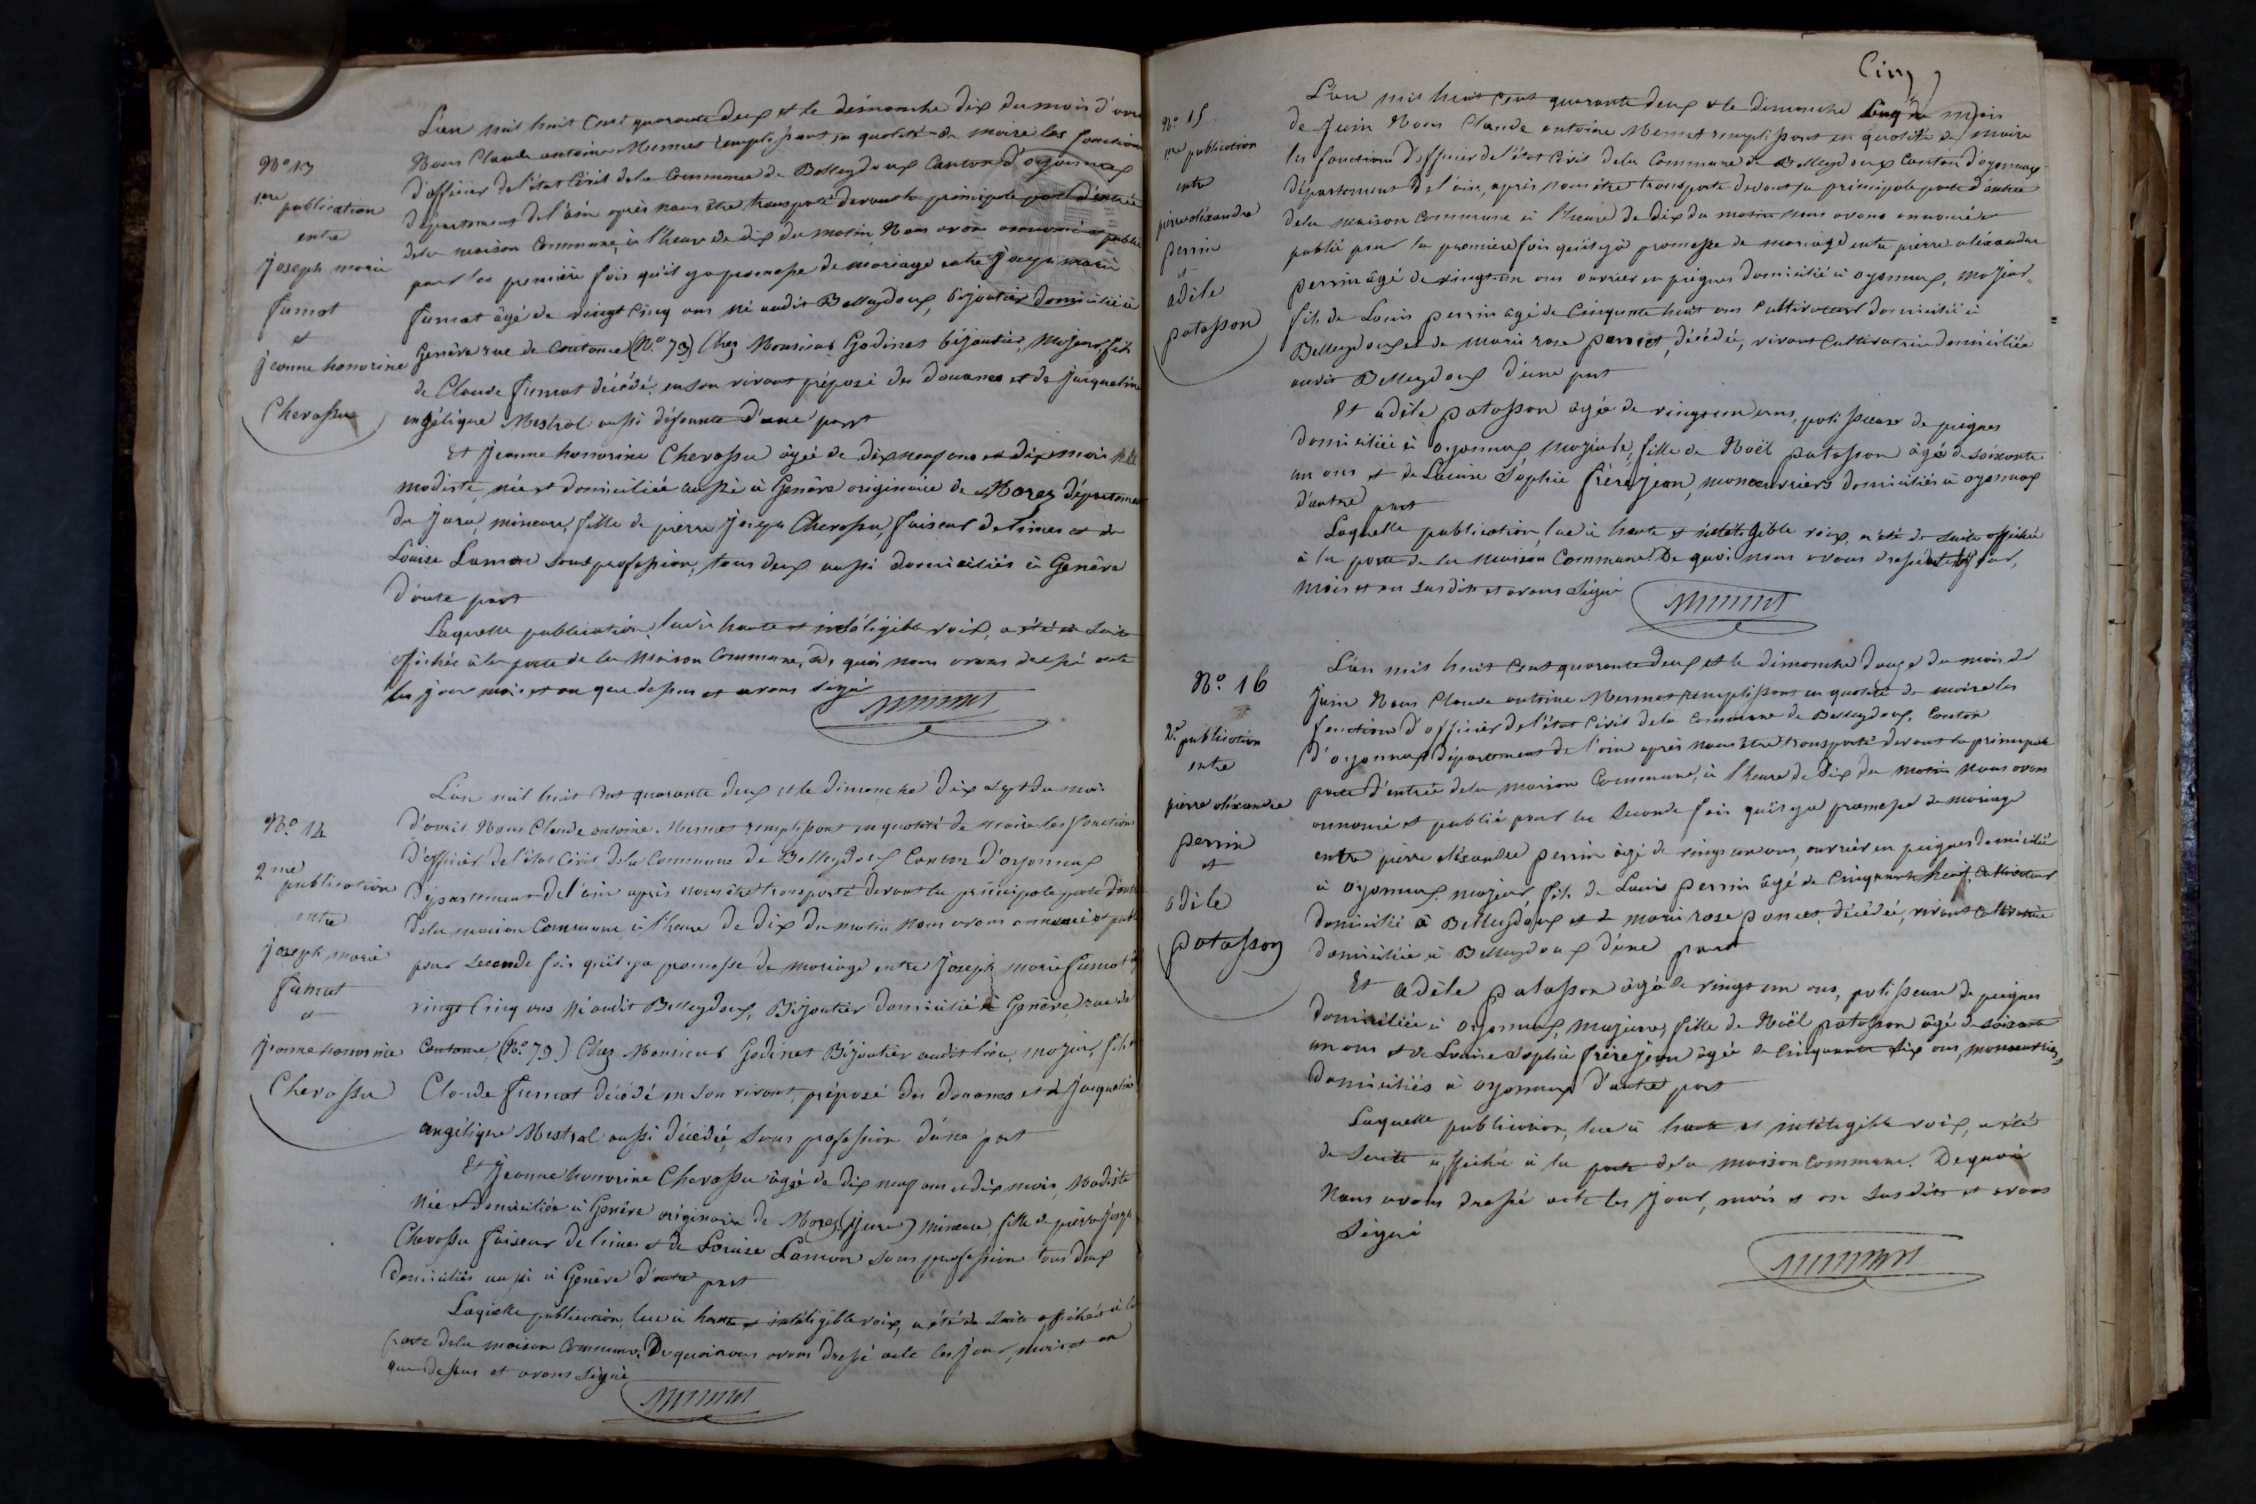 N.o 13
1ere publication
entre
joseph marie
fumat
et
jeanne honorine
Chevassu
L'an mil huit Cent quarante deux et le dimanche dix du mois d'avril
Nous Claude antoine Mermet remplissant en qualité de maire les fonctions
d'officier de l'état Civil de la Commune de Belleydoux Canton d'oyonnax
département de l'ain après nous être transporté devant la principale porte d'entrée
de la maison Commune, à l'heure de dix du matin, Nous avons annoncé et publié
pour la première fois qu'il y a promesse de mariage entre joseph marie
fumat âgé de vingt Cinq ans né audit Belleydoux, bijoutier domicilié à
Genève rue de Coutance (N.o 79) Chez Monsieur Godinet bijoutier, Majeur, fils
de Claude fumat décédé, en son vivant préposé des douanes et de jacqueline
angélique Mestral aussi défunte d'une part
Et jeanne honorine Chevassu âgée de dix neuf ans et dix mois
modiste, née et domiciliée aussi à Genève originaire de Morez département
du jura, mineure, fille de pierre joseph Chevassu, faiseur de limes et de
Louise Lamon sans profession, tous deux aussi domiciliés à Genève
d'autre part
Laquelle publication, lue à haute et intéligible voix, a été de suite
affichée à la porte de la Maison Commune, de quoi nous avons dressé acte
les jour mois et an que dessus et avons signé
Mermet
N.o 14
2me publication
entre
joseph marie
fumat
et
jeanne honorine
Chevassu
L'an mil huit Cent quarante deux et le dimanche dix sept du mois
d'avril Nous Claude antoine Mermet remplissant en qualité de maire les fonctions
d'officier de l'état Civil de la Commune de Belleydoux Canton d'oyonnax
département de l'ain après nous être transporté devant la principale porte d'entrée
de la maison Commune, à l'heure de dix du matin Nous avons annoncé et publié
pour seconde fois qu'il y a promesse de mariage entre joseph marie fumat
vingt Cinq ans né audit Belleydoux, Bijoutier domicilié à Genève, rue de
Coutance, (N.o 79) Chez Monsieur Godinet Bijoutier audit lieu, majeur, fils de
Claude fumat décédé en son vivant, préposé des douanes et de jacqueline
angélique Mestral aussi décédée, sans profession d'une part
Et jeanne honorine Chevassu âgée de dix neuf ans et dix mois, Modiste
Née et domiciliée à Genève originaire de Morez (jura) mineure, fille de pierre joseph
Chevassu faiseur de limes et de Louise Lamon sans profession tous deux
domiciliés aussi à Genève d'autre part
Laquelle publication, lue à haute et intéligible voix, a été de suite affichée à la
porte de la maison Commune. De quoi nous avons dressé acte les jour, mois et an
que dessus et avons signé
Mermet
Cinq
N.o 15
1re publication
entre
pierre aléxandre
perrin
et
adèle
patasson
L'an mil huit Cent quarante deux et le dimanche Cinq du mois
de juin Nous Claude antoine Mermet remplissant en qualité de maire
les fonctions d'officier de l'état Civil de la Commune de Belleydoux Canton d'oyonnax
département de l'ain, après nous être transporté devant la principale porte d'entrée
de la maison Commune à l'heure de dix du matin nous avons annoncé et
publié pour la première fois qu'il y a promesse de mariage entre pierre aléxandre
perrin âgé de vingt un ans ouvrier en peignes domicilié à oyonnax, Majeur,
fils de Louis perrin âgé de Cinquante huit ans Cultivateur domicilié à
Belleydoux et de marie rose poncet, décédée, vivant Cultivatrice domiciliée
audit Belleydoux d'une part
Et adèle patasson âgée de vingt un ans, polisseuse de peignes
domiciliée à oyonnax, Majeure, fille de Noël patasson âgé de soixante
un ans et de Louise Sophie frèrejean, manoeuvriers domiciliés à oyonnax
d'autre part
Laquelle publication, lue à haute et intéligible voix, a été de suite affichée
à la porte de la Maison Commune. De quoi nous avons dressé acte les jour,
Mois et an susdits et avons signé
Mermet
N.o 16
2e publication
entre
pierre aléxandre
perrin
et
adèle
patasson
L'an mil huit Cent quarante deux et le dimanche douze du mois de
juin Nous Claude antoine Mermet remplissant en qualité de maire les
fonctions d'officier de l'état Civil de la Commune de Belleydoux, Canton
d'oyonnax département de l'ain après nous être transporté devant la principale
porte d'entrée de la maison Commune, à l'heure de dix du matin Nous avons
annoncé et publié pour la seconde fois qu'il y a promesse de mariage
entre pierre aléxandre perrin âgé de vingt un ans, ouvrier en peignes domicilié
à oyonnax, majeur, fils de Louis perrin âgé de Cinquante huit, Cultivateur
domicilié à Belleydoux et de marie rose poncet, décédée, vivant Cultivatrice
domiciliée à Belleydoux d'une part
Et adèle patasson âgée de vingt un ans, polisseuse de peignes
domiciliée à oyonnax, Majeure, fille de Noël patasson âgé de soixante
un ans et de Louise Sophie frèrejean âgée de Cinquante six ans, manoeuvriers
domiciliés à oyonnax d'autre part
Laquelle publication, lue à haute et intéligible voix, a été
de suite affichée à la porte de la maison Commune. De quoi
Nous avons dressé acte les jour, mois et an susdits et avons
signé
Mermet